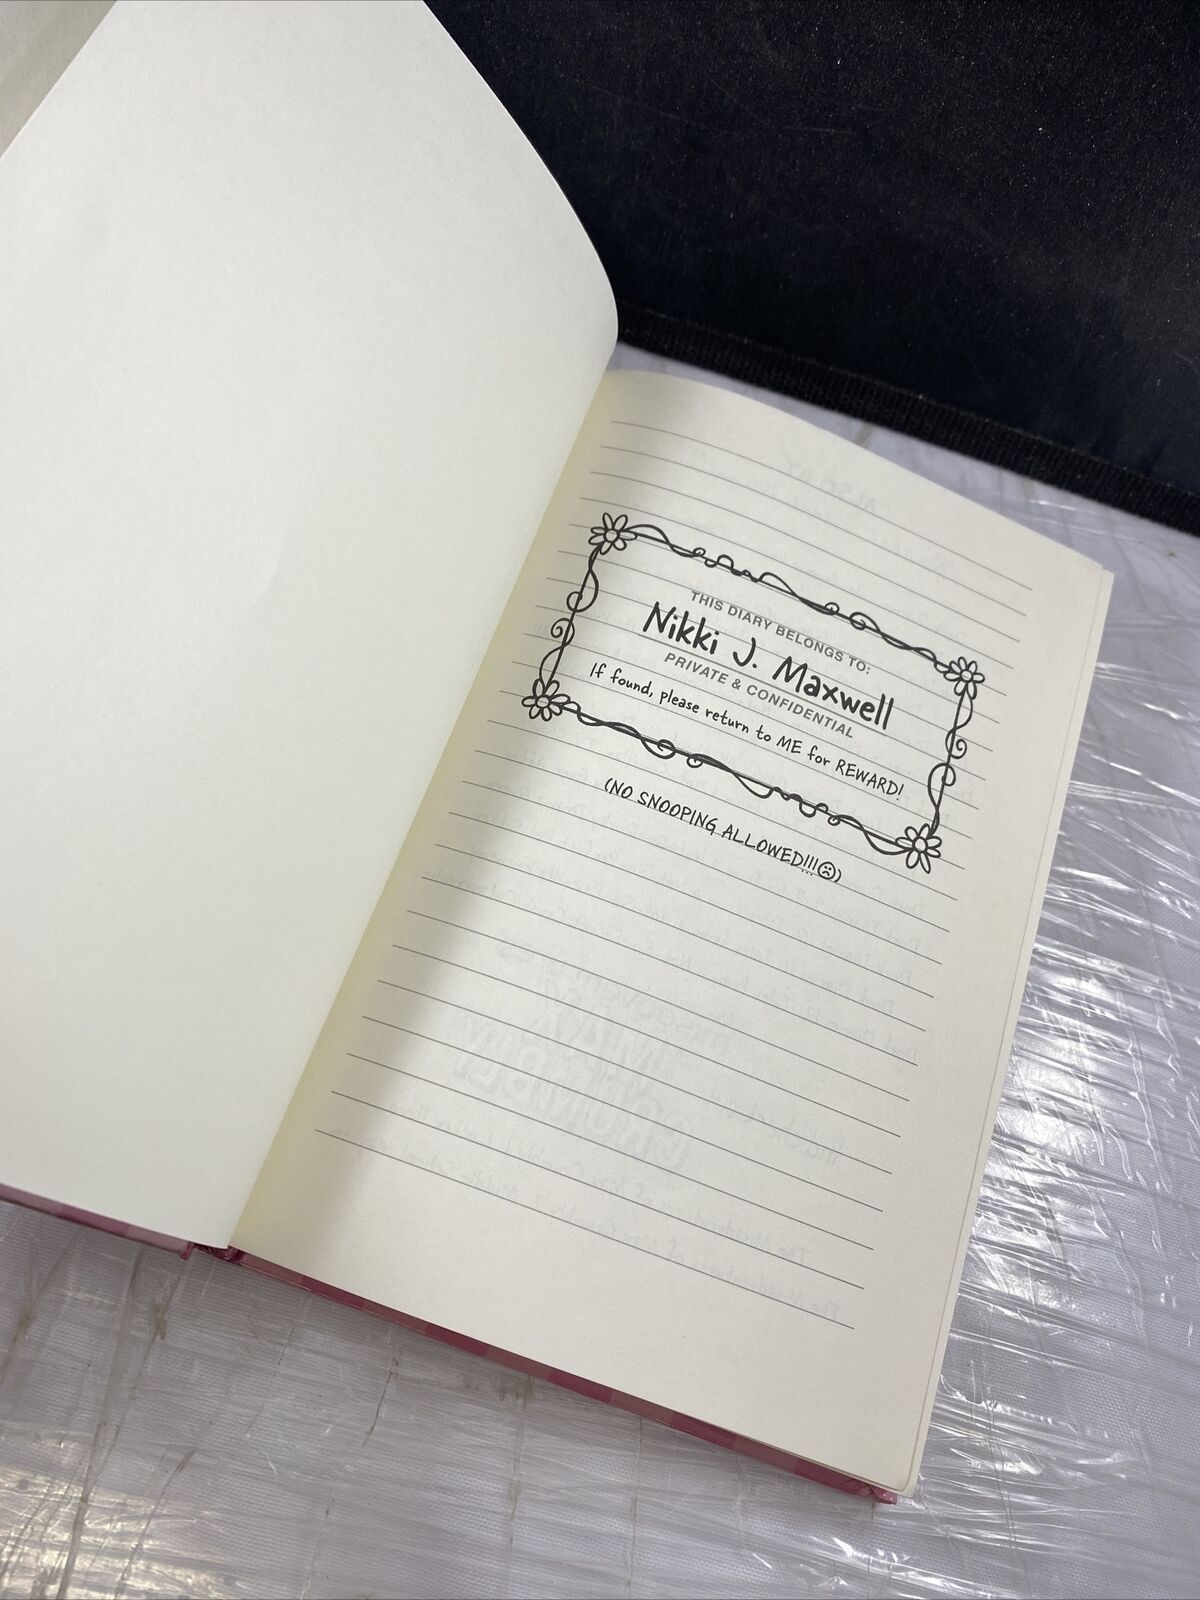 THIS DIARY BELONGS TO:
Nikki J. Maxwell
PRIVATE & CONFIDENTIAL
If found, please return to ME for REWARD!
(NO SNOOPING ALLOWED!!!☹)